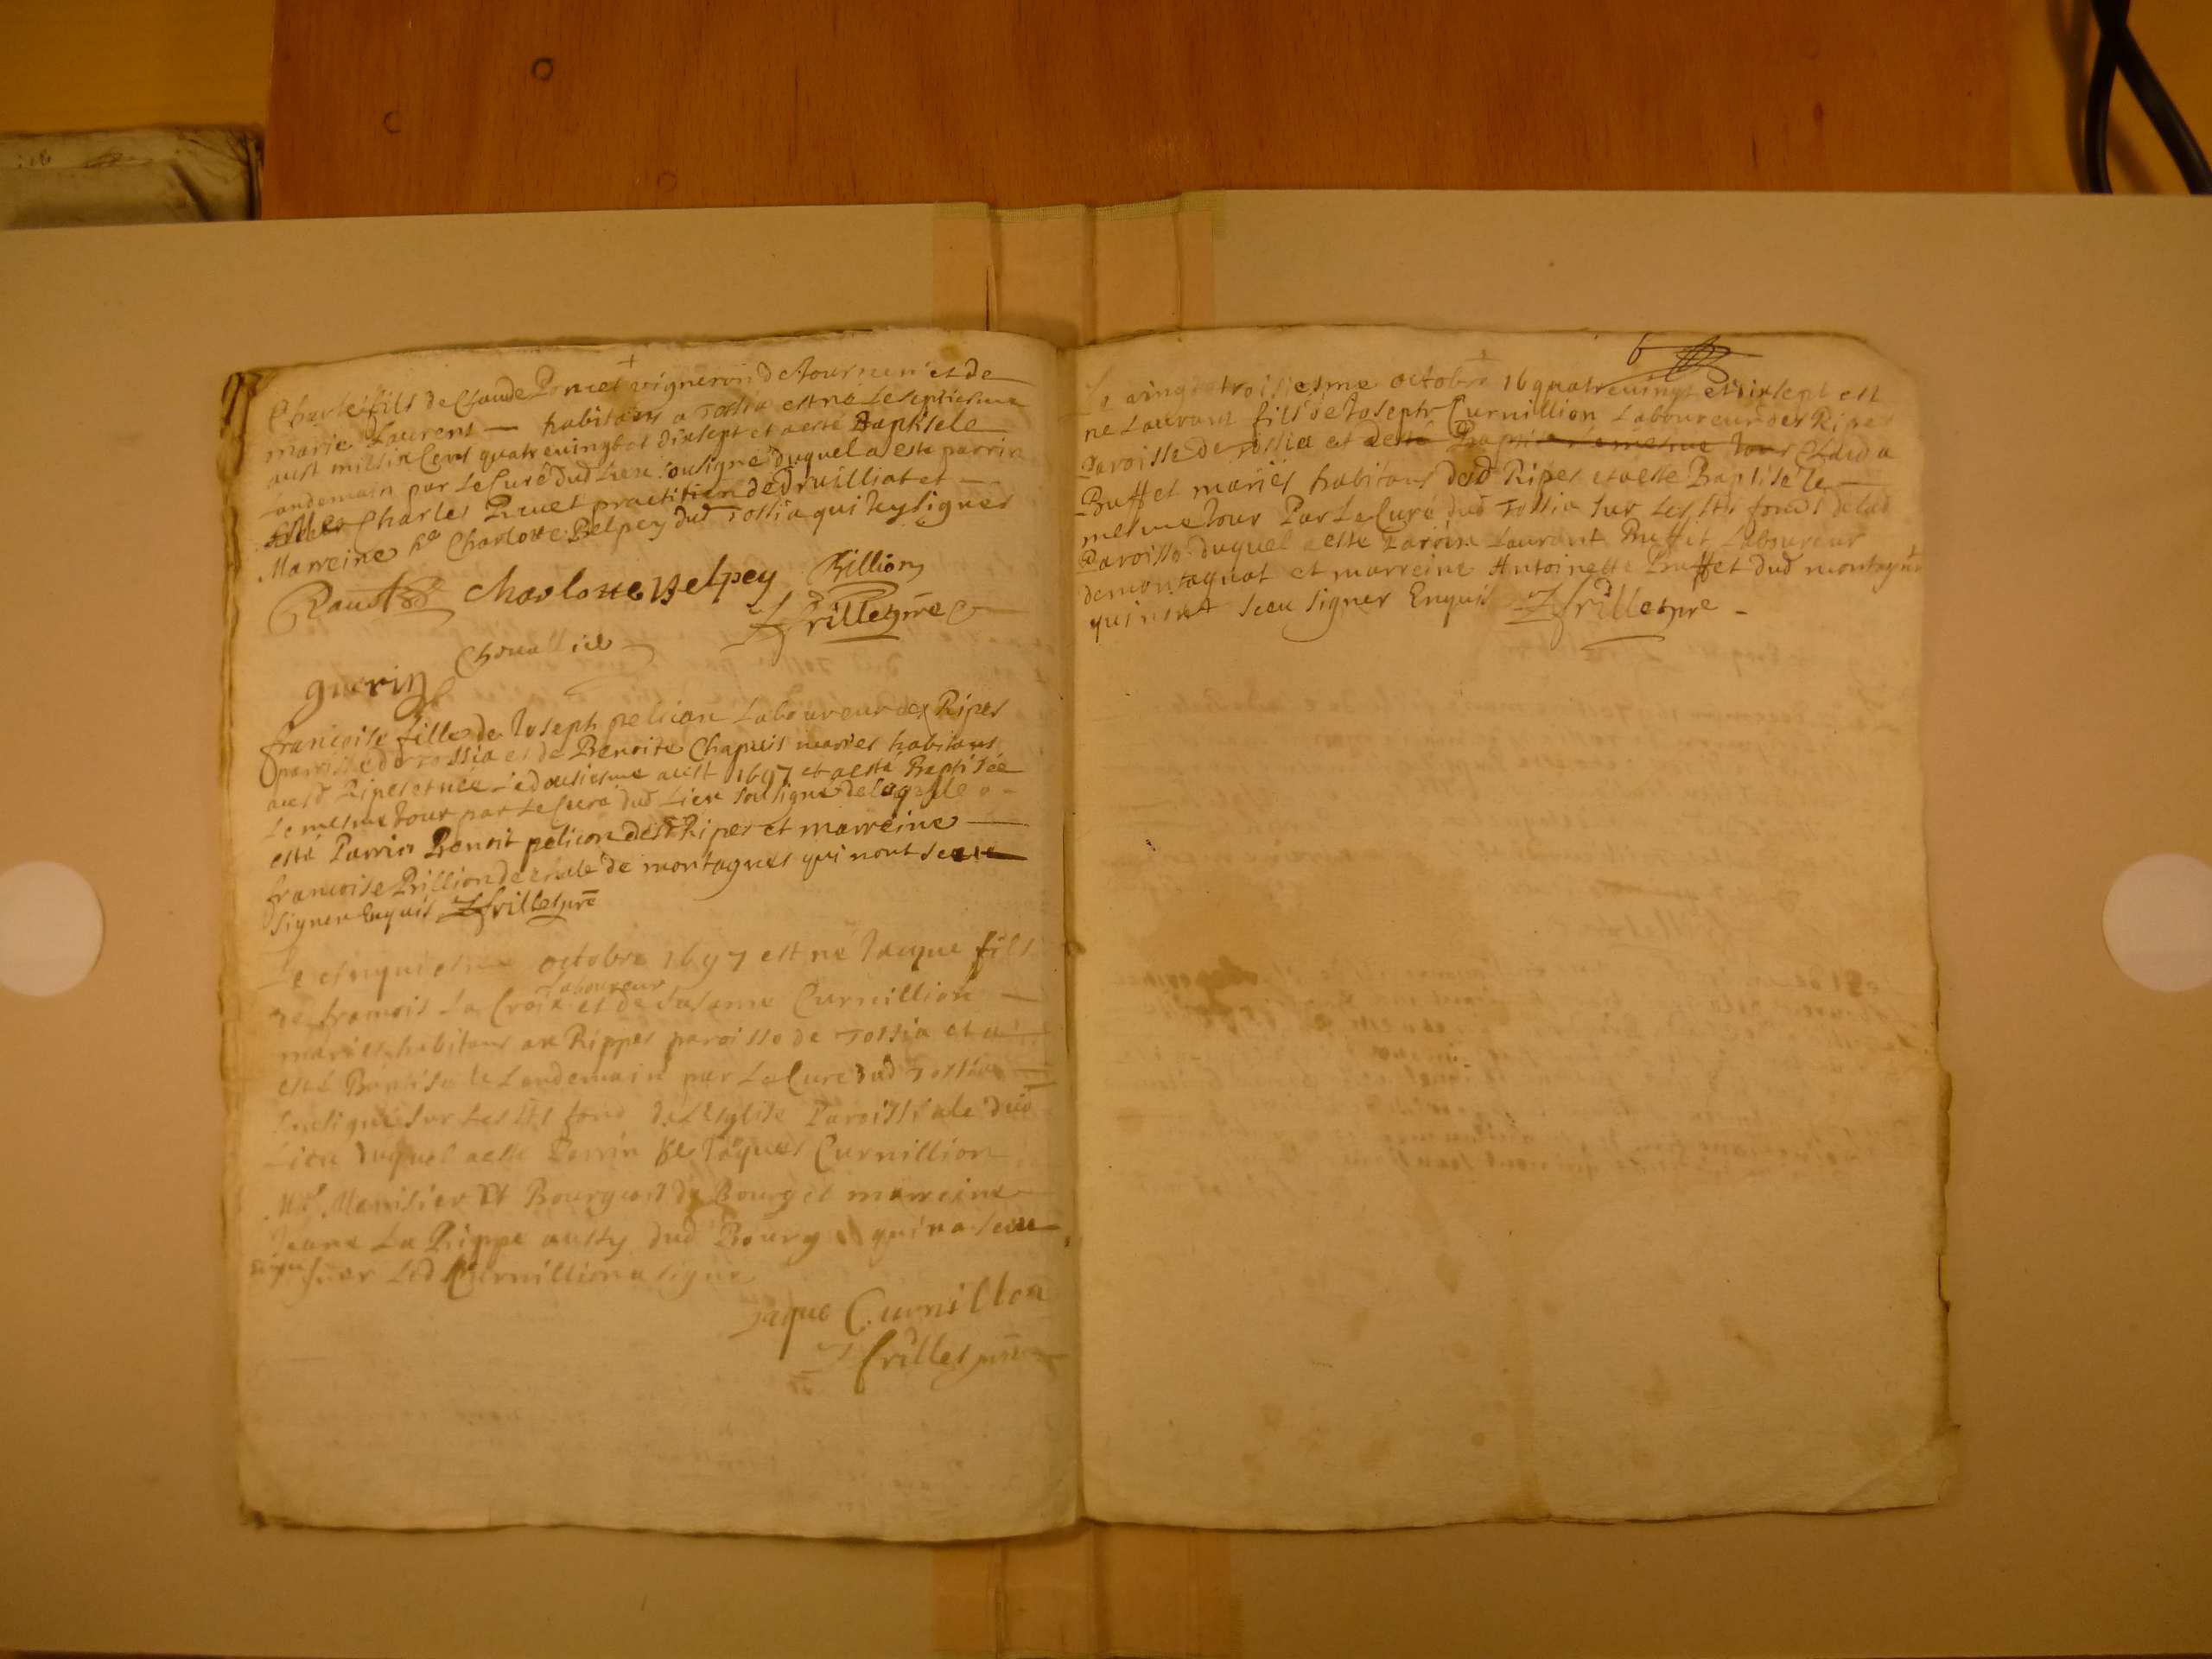 Charle fils de Claude Poncet vigneron de Tournem et de
marie Laurens — habitans a Tossia est né Le septiesme
aust mil six Cens quatre vingt et dixsept et a esté Baptisé le
Landemain par Le Curé dud Lieu sousigné duquel a esté parrin
Charles practitien de Druilliat et —
Marreine Charlotte Belpey dud Tossia qui hy signes
Charlotte Belpey Billion
frilles pre
Chevallier
guerin
francoise fille de Joseph pelican Laboureur des Ripes
paroisse de Tossia et de Benoite Chapuis maries habitans
ausd Ripes et née Le dousiesme aust 1697 et a esté Baptisée
Le mesme Jour par Le Curé dud Lieu sousigné de laquelle a
esté Parrin Benoit pelicon desd Ripes et marreine —
francoise Billion de montagnes qui nont sceu
signer Enquis frilles pre
Le cinquiesme octobre 1697 est né Jacque fils
de francois La Croix Laboureur et de Susanne Curnillion —
mariés habitans au Rippes paroisse de Tossia et a
esté Baptisé le Lendemain par Le Curé dud Tossia
sousigné sur Les sts fond de Lesglise Paroissiale dud
Lieu duquel a esté Parrin Jaques Curnillion
Me Menisier et Bourgois de Bourg et marreine
Jeane La Rippe aussy dud Bourg qui na sceu
signer Led Curnillion a signé
Jaque Curnillon
frilles pre
6
Le vingt troisiesme octobre 16 quatrevingt et dixsept est
né Laurant fils de Joseph Curnillion Laboureur des Ripes
Paroisse de Tossia et a esté Baptisé le mesme Jour Claida
Buffet mariés habitans desd Ripes et a esté Baptisé le —
mesme Jour Par Le Curé dud Tossia sur Les sts fonds delad
Paroisse duquel a esté Parrin Laurant Buffet Laboureur
de montagnat et marreine Antoinette Buffet dud montagnat
qui nont sceu signer Enquis frilles pre —